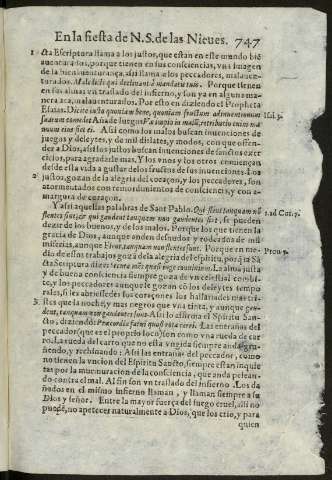 En la fiesta de N.S. de las Nieues. 747
1 cta Escriptura llama a los justos, que estan en este mundo biē
auenturados, porque tienen en sus consciencias, vna imagen
de la bienauenturança, assi llama a los peccadores, malauen-
turados. Maledicti qui declinant à mandatis tuis. Porque tienen
en sus almas vn traslado del infierno, y son ya en alguna ma-
nera aca, malauenturados. Por esto en diziendo el Propheta
Esaias. Dicite iusto quoniam bene, quoniam fructum adinuentionum Isai. 3.
suarum comedet Aña de luego: Væ impio in malū, retributio enim ma-
nuum eius fiet ei. Assi como los malos buscan inuenciones de
juegos y deleytes, y de mil disfates, y modos, con que offen-
der a Dios, assi los justos buscan inuenciones de sanctos exer-
cicios, para agradarle mas. Y los vnos y los otros comiençan
desde esta vida a gustar de los fructos de sus inuenciones. Los
2 justos, gozan de la alegria del coraçon, y los peccadores, son
atormentados con remordimientos de consciencia, y con a-
margura de coraçon.
Y assi aquellas palabras de Sant Pablo. Qui flent tanquam nō
flentes sint, & qui gaudent tanquam non gaudentes sint, se pueden 1. ad Cor. 7.
dezir de los buenos, y de los malos. Porque los que tienen la
gracia de Dios, aunque anden desnudos y rodeados de mil
miserias, aunque Flent, tanquam non flentes sunt. Porque en me-
dio de essos trabajos goza de la alegria del espiritu, porq̄ la Sā Prou.
cta Scriptura dize: secura mens quasi iuge conuiuium. La alma justa
y de buena consciencia siempre goza de vn celestial combi-
te, y los peccadores aunque le gozan cō los deleytes tempo
rales, si les abriessedes sus coraçones los hallariades mas tri-
3 stes que la noche, y mas negros que vna tinta, y aunque gau-
dent, tanquam non gaudentes sunt. Assi lo affirma el Spiritu San-
cto, diziendo: Præcordia fatui quasi rota carri. Las entrañas del
peccador (que es el proprio loco) son como vna rueda de car
ro. La rueda del carro que no esta vngida siempre anda gru-
ñiendo, y rechinando: Assi las entrañas del peccador, como
no tienen la vncion del Espiritu Sancto, siempre estan inquie
tas por la murmuracion de la consciencia, que anda pelean-
do contra el mal. Al fin son vn traslado del infierno. Los da
ñados en el mismo infierno llaman, y llaman siempre a su
Dios y señor. Entre la mayor fuerça del fuego cruel, assi no
puedē, no apetecer naturalmente a Dios, que los crio, y para
quien